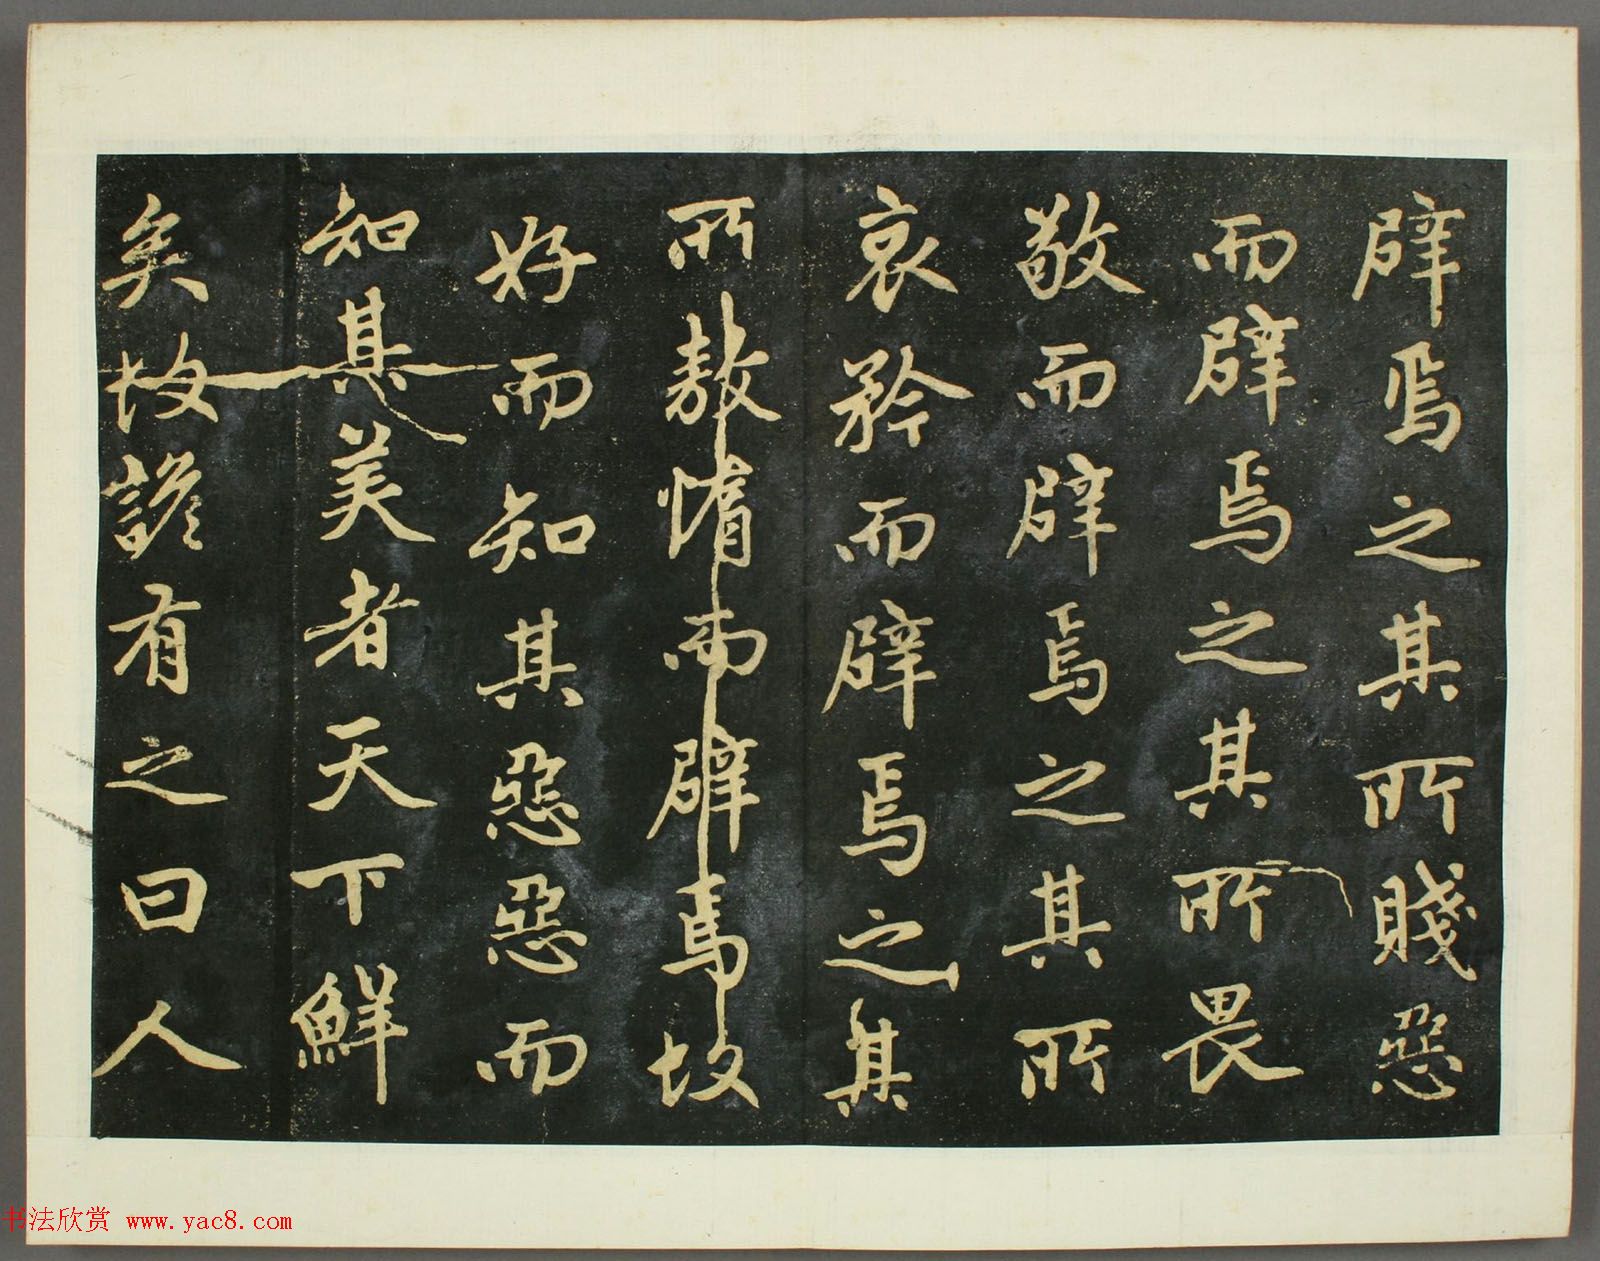 辟焉之其所賤惡
而辟焉之其所畏
敬而辟焉之其所
哀矜而辟焉之其
所敖惰而辟焉故
好而知其惡惡而
知其美者天下鮮
矣故諺有之曰人
书法欣赏 www.yac8.com